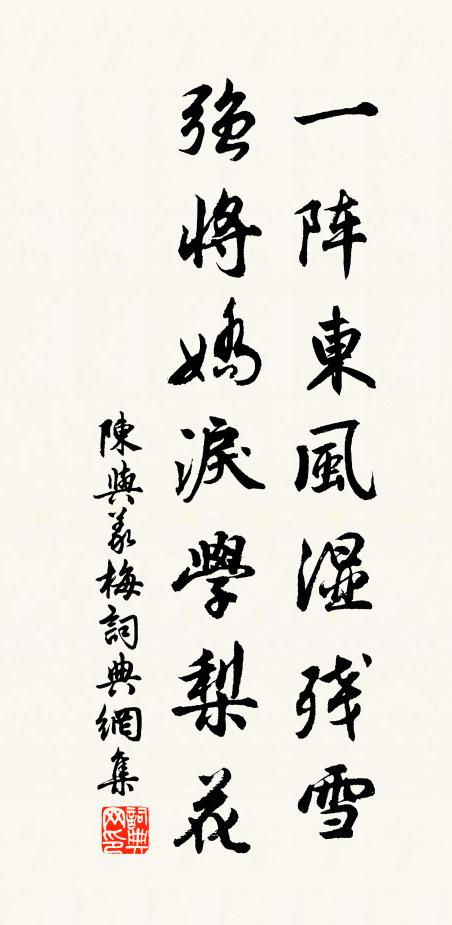 一阵東風湿残雪
強將嬌淚學梨花
陳與義梅詞典網集
詞典网印